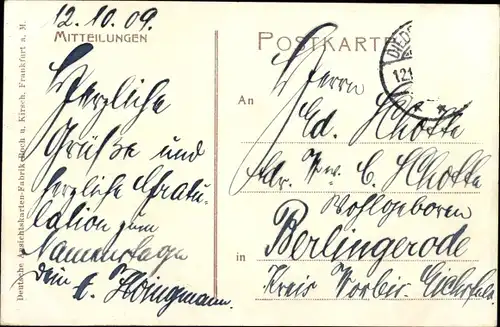 12.10.09.
MITTEILUNGEN
Herzliche
Grüße und
herzliche Gratu-
lation zum
Namenstage
dein
POSTKARTE
DIED
12.1
An
Herrn
Ed. Schotte
Adr. Ww. C. Schotte
Wohlgeboren
in
Berlingerode
Kreis Worbis. Eichsfeld.
Deutsche Ansichtskarten-Fabrik Bech u. Kirsch, Frankfurt a. M.